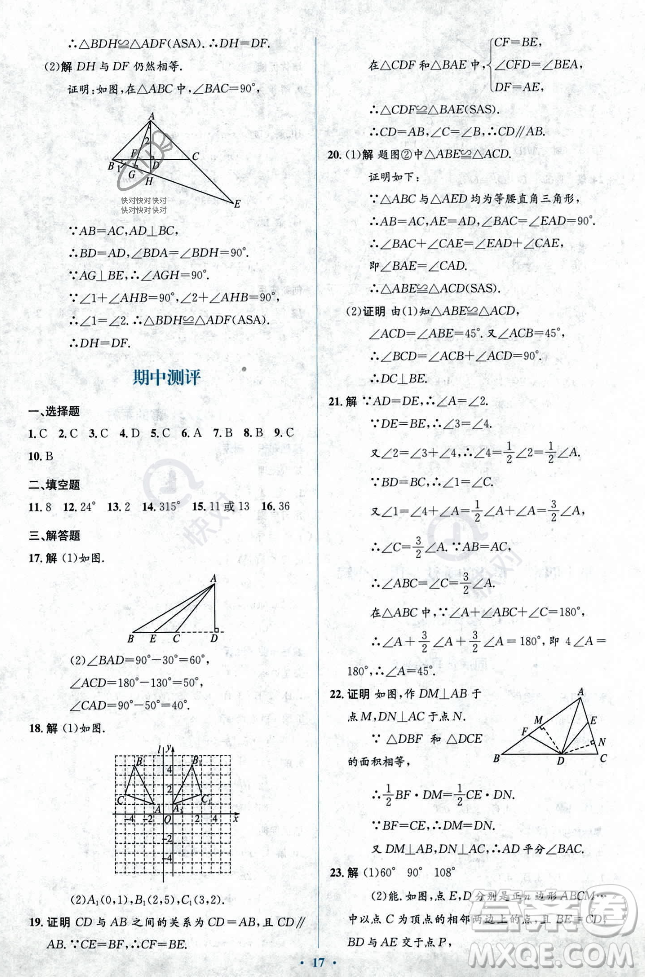 ∴△BDH≌△ADF(ASA). ∴DH=DF.
(2)解 DH与DF仍然相等.
证明:如图,在△ABC中,∠BAC=90°,
A
2
F
B
D
C
1
G
H
E
快对快对快对
快对快对快对
∵AB=AC,AD⊥BC,
∴BD=AD,∠BDA=∠BDH=90°.
∵AG⊥BE,∴∠AGH=90°.
∵∠1+∠AHB=∠2+∠AHB=90°,
∴∠1=∠2. ∴△BDH≌△ADF.
∴DH=DF.
期中测评
一、选择题
1.C 2.C 3.C 4.D 5.C 6.A 7.B 8.B 9.C
10.B
二、填空题
11.8 12.24° 13.2 14.315° 15.11或13 16.36
三、解答题
17.解 (1)如图.
A
B E C D
(2)∠BAD=90°-30°=60°,
∠ACD=180°-130°=50°,
∠CAD=90°-50°=40°.
18.解 (1)如图.
l y
B 4 B₁
C 2 C₁
A A₁
-4 -2 O 2 4 x
-2
-4
(2)A₁(0,1),B₁(2,5),C₁(3,2).
19.证明 CD与AB之间的关系为CD=AB,且CD∥
AB.
CF=BE,
在△CDF和△BAE中,∠CFD=∠BEA,
DF=AE,
∴△CDF≌△BAE(SAS).
∴CD=AB,∠C=∠B. ∴CD∥AB.
20.(1)解 题图②中△ABE≌△ACD.
证明如下:
∵△ABC与△AED均为等腰直角三角形,
∴AB=AC,AE=AD,∠BAC=∠EAD=90°.
∴∠BAC+∠CAE=∠EAD+∠CAE,
即∠BAE=∠CAD.
∴△ABE≌△ACD(SAS).
(2)证明 由(1)知△ABE≌△ACD,
∠ACD=∠ABE=45°.又∠ACB=45°,
∴∠BCD=∠ACB+∠ACD=90°.
∴DC⊥BE.
21.解 ∵AD=DE,∴∠A=∠2.
∵DE=BE,∴∠3=∠4.
又∠2=∠3+∠4,∴∠3=∠4=1/2∠2=1/2∠A.
又∠1=∠A+∠4=∠A+1/2∠A=3/2∠A,
∴∠C=3/2∠A.∵AB=AC,
∴∠ABC=∠C=3/2∠A.
在△ABC中,∵∠A+∠ABC+∠C=180°,
∴∠A+3/2∠A+3/2∠A=180°,即4∠A=
180°.∴∠A=45°.
22.证明 如图,作DM⊥AB于
点M,DN⊥AC于点N.
∵△DBF和△DCE
的面积相等,
A
M
F
E
N
B D C
∴1/2BF·DM=1/2CE·DN.
∵CE=BF,∴DM=DN.
又DM⊥AB,DN⊥AC,∴AD平分∠BAC.
23.解 (1)60° 90° 108°
(2)能.如图,点E,D分别是正n边形ABCM…
中以点C为顶点的相邻两边上的点,且BE=CD,
BD与AE交于点P,
17